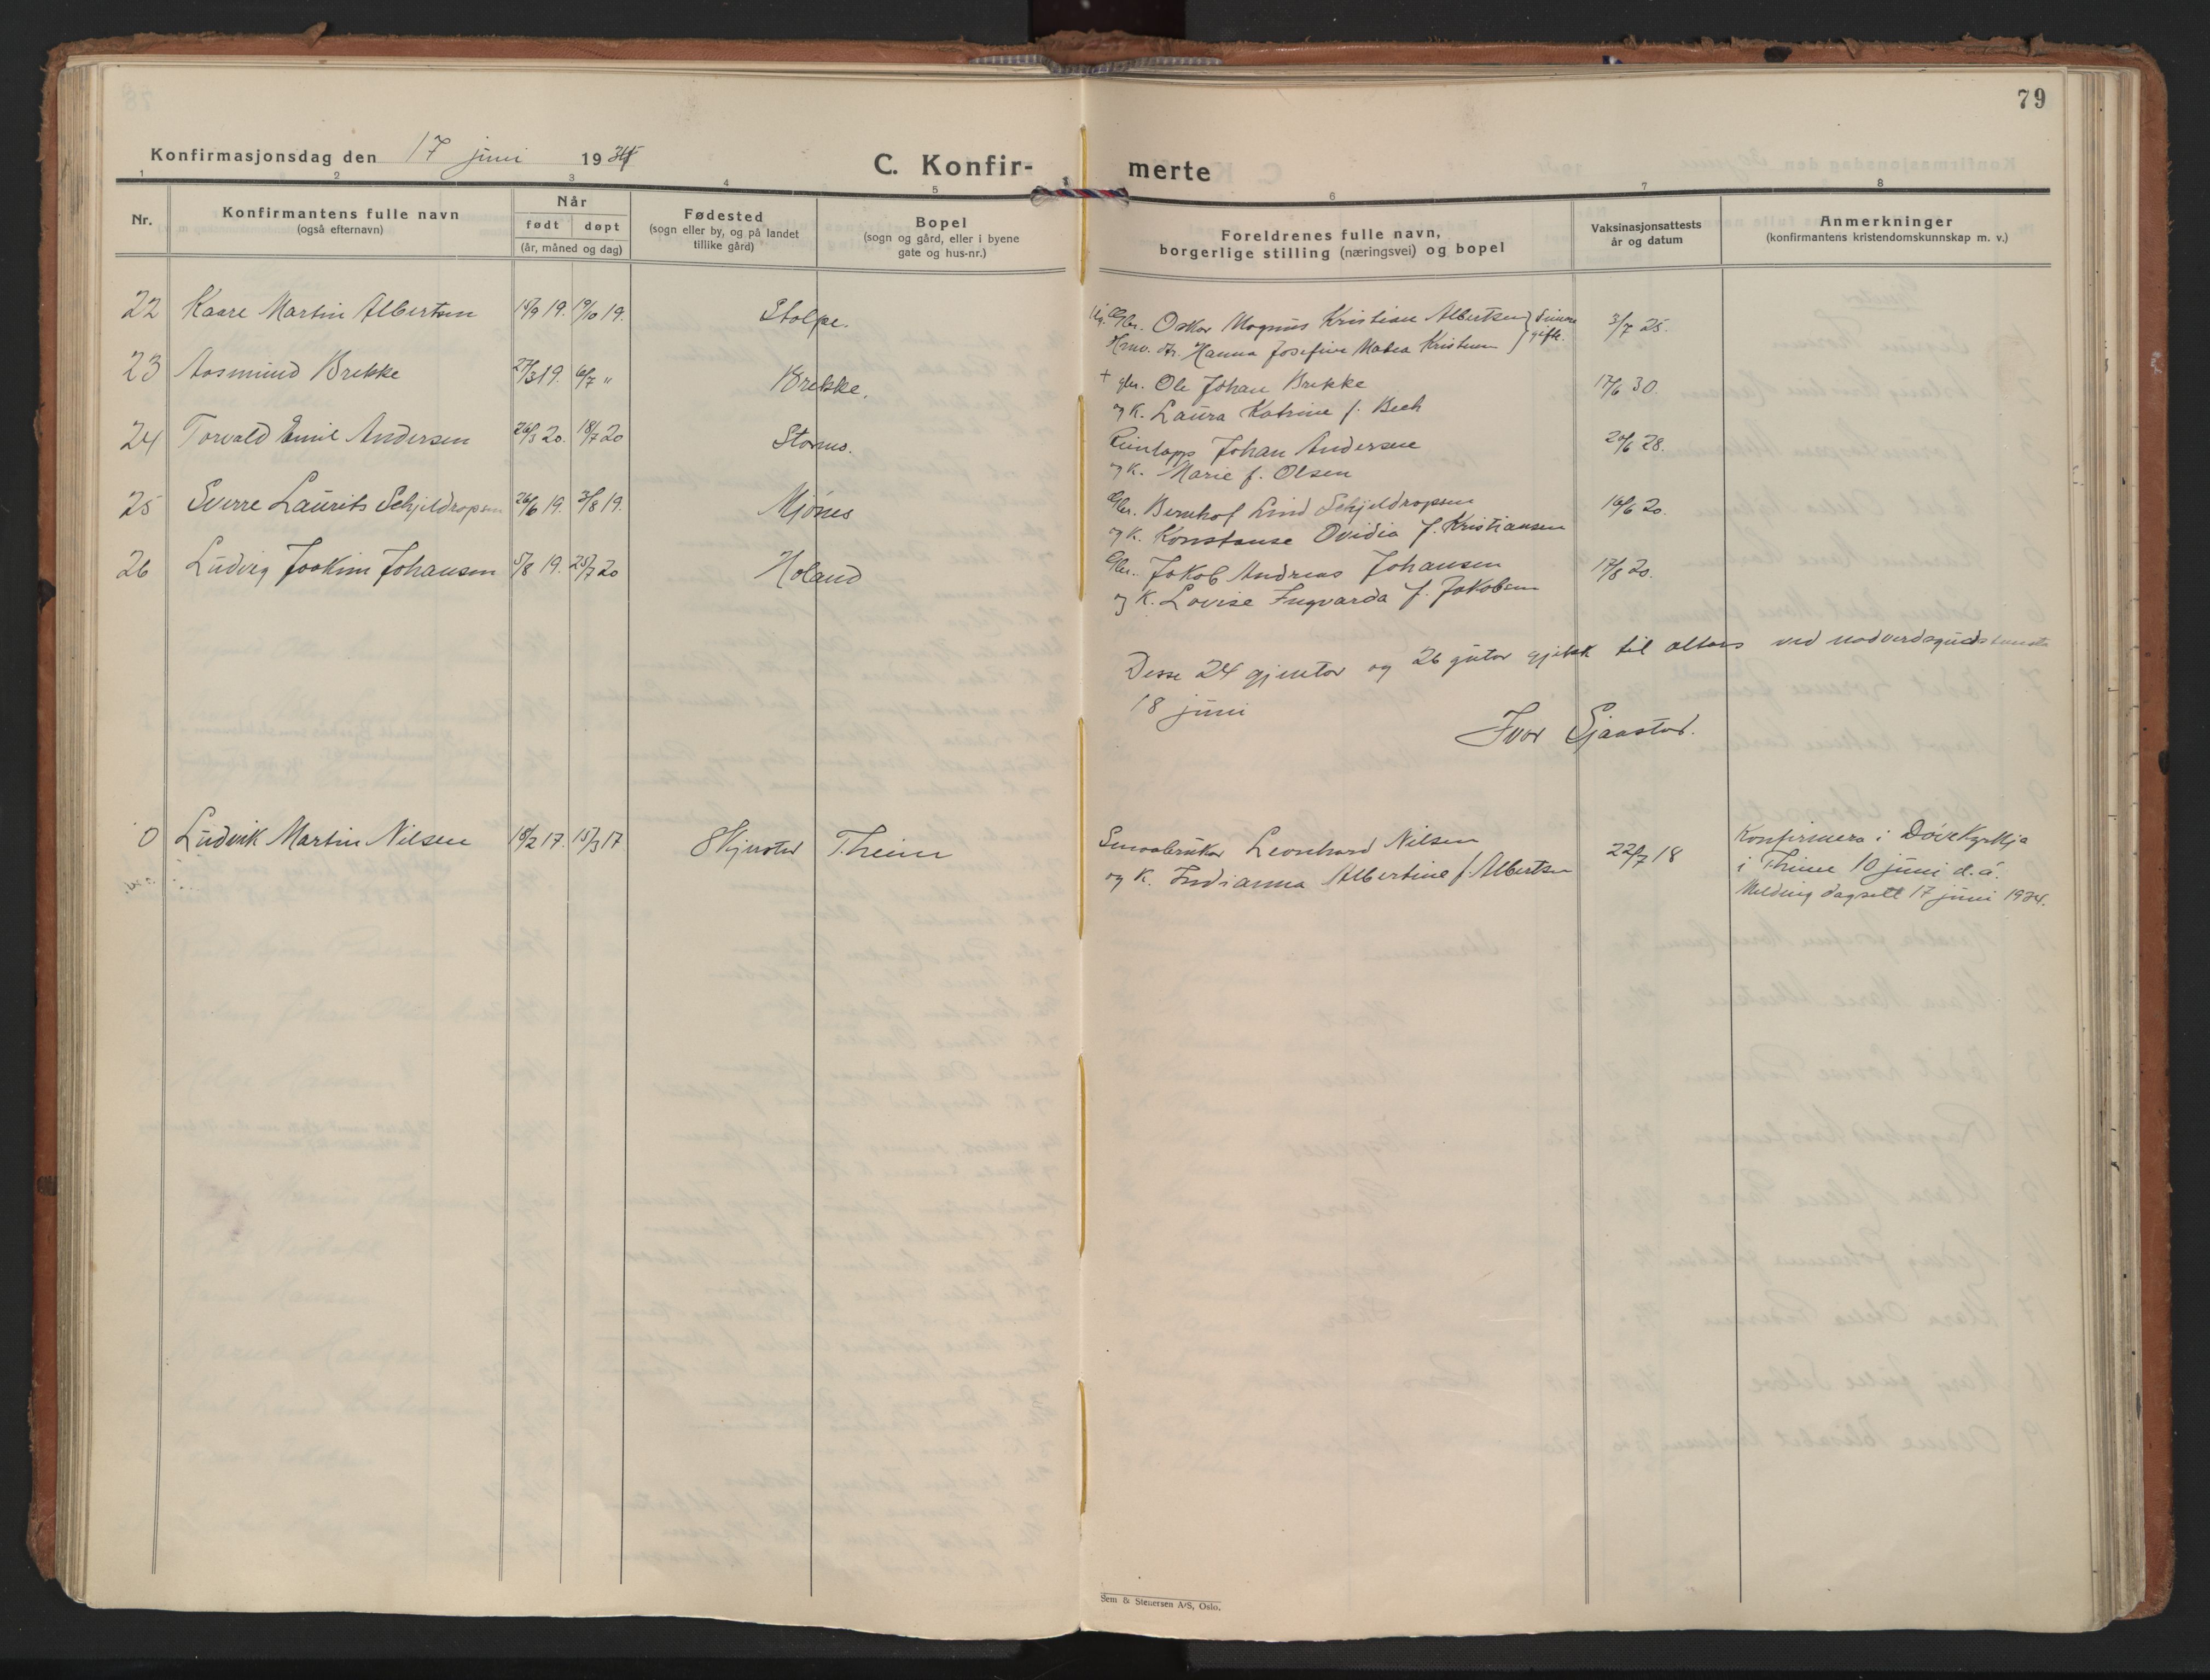 79
Konfirmasjonsdag den 17 juni 1934
C. Konfir-
merte
1 2 3 4 5 6 7 8
Nr.
Konfirmantens fulle navn
(også efternavn)
Når
født døpt
(år, måned og dag)
Fødested
(sogn eller by, og på landet
tillike gård)
Bopel
(sogn og gård, eller i byene
gate og hus-nr.)
Foreldrenes fulle navn,
borgerlige stilling (næringsvei) og bopel
Vaksinasjonsattests
år og datum
Anmerkninger
(konfirmantens kristendomskunnskap m. v.)
22 Kaare Martin Albertsen 15/9 19. 19/10 19. Stolpe. Gbr. Oskar Magnus Kristian Albertsen 3/7 25.
Hanna Josefine Matea Kristensen gifte.
23 Aasmund Brekke 27/3 19. 6/7 " Brekke. + gbr. Ole Johan Brekke 17/6 30.
og k. Laura Katrine f. Bech
24 Torvald Emil Andersen 26/3 20. 18/7 20 Stormo. Johan Andersen 20/6 28.
og k. Marie f. Olsen
25 Sverre Laurits Schjeldropsen 26/6 19. 3/8 19. Mjönes Gbr. Bernhof Lind Schjeldropsen 16/6 20.
og k. Konstanse Ovidia f. Kristiansen
26 Ludvig Joakim Johansen 5/8 19. 25/7 20 Holand Gbr. Jakob Andreas Johansen 17/8 20.
og k. Lovise Ingvarda f. Jakobsen
Desse 24 gjentor og 26 gutar gjekk til altars ved nadverdsgudstenesta
18 juni
Ivar Sjaastad.
0 Ludvik Martin Nilsen 18/2 17. 15/3 17 Skjerstad Trheim Smaabrukar Leonhard Nilsen 22/7 18 Konfirmera i Dövekyrkja
og k. Indianna Albertine f. Albertsen i Trheim 10 juni d.å.
Melding dagsett 17 juni 1934.
Sem & Stenersen A/S, Oslo.